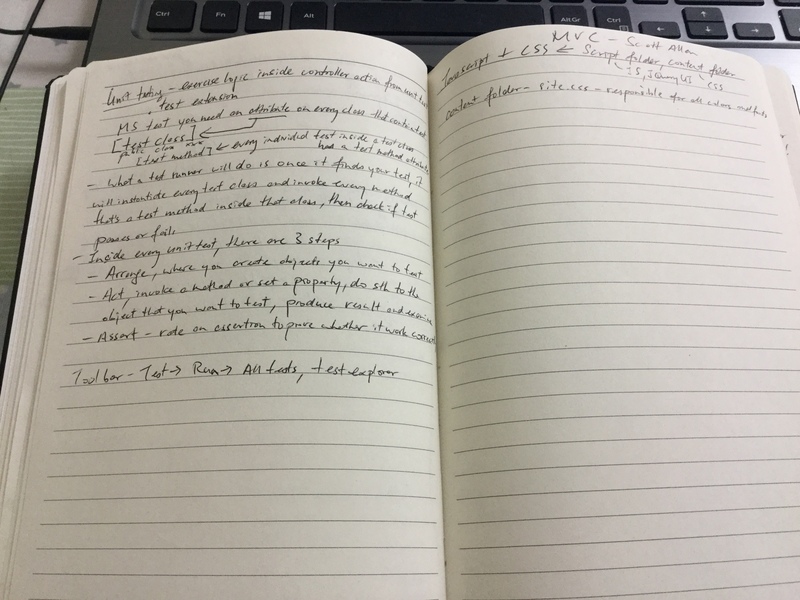 Unit testing - exercise logic inside controller action from unit test
test extension
MS test you need an attribute on every class that contain test
[test class]
public class xxx
[test method] ← every individual test inside a test class
had a test method attribute
- What a test runner will do is once it finds your test, it
will instantiate every test class and invoke every method
that's a test method inside that class, then check if test
passes or fails
- Inside every unit test, there are 3 steps
- Arrange, where you create objects you want to test
- Act, invoke a method or set a property, do sth to the
object that you want to test, produce result and examine
- Assert - make an assertion to prove whether it work correct
Toolbar - Test → Run → All tests, test explorer
MVC - Scott Allen
Javascript + CSS ← Script folder, content folder
JS, JQuery UI CSS
content folder - site.css - responsible for all colors and fonts
Fn
Alt
Alt Gr
Ctrl